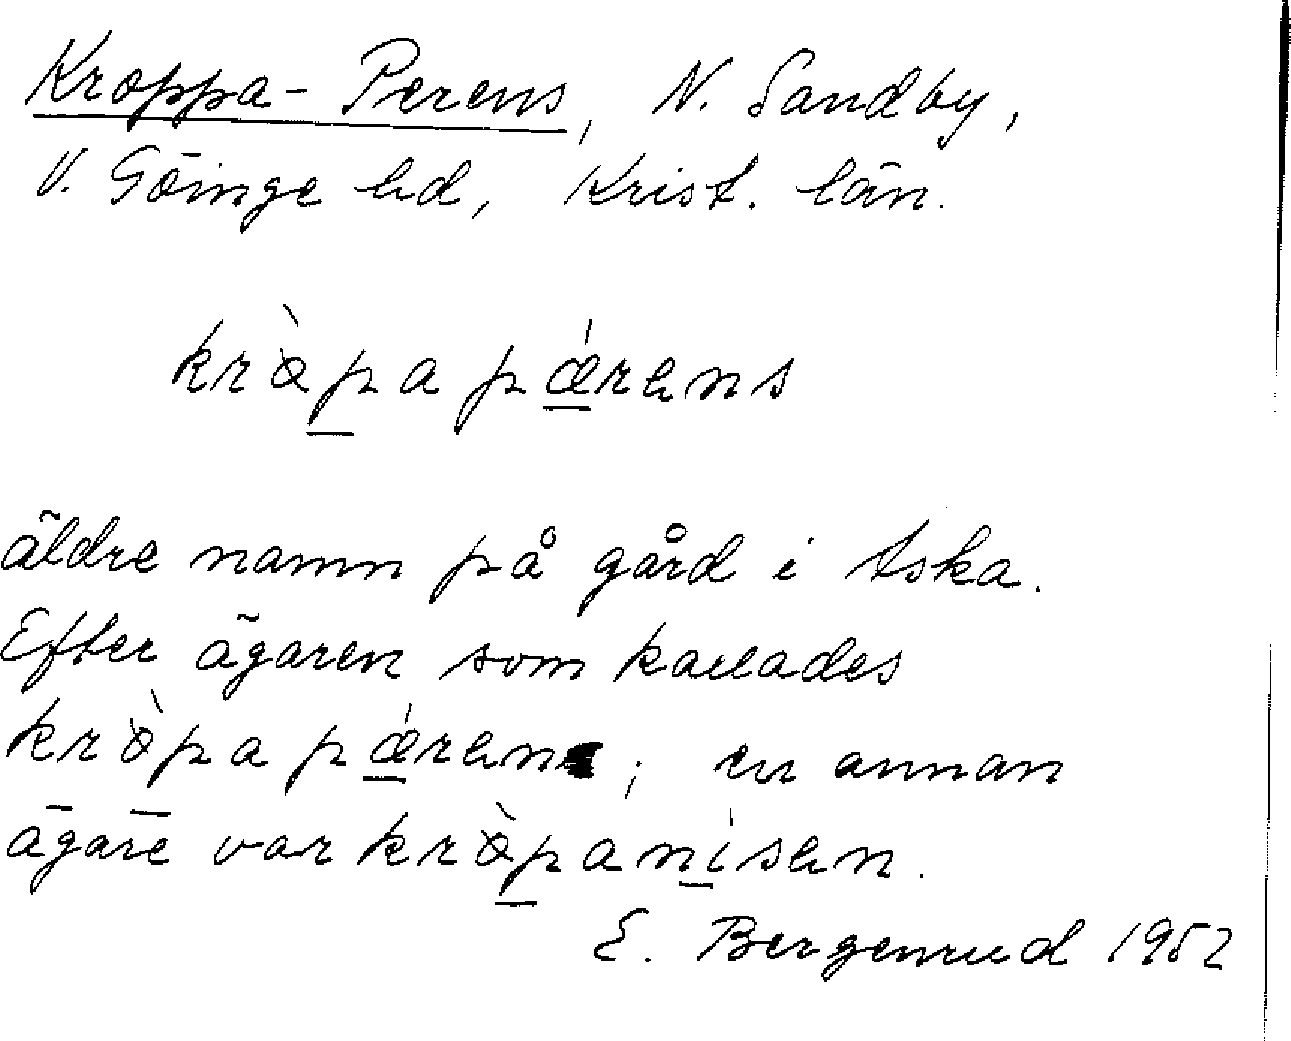 Kroppa-Perens, N. Sandby,
V. Göinge hd, Krist. län.
krə̀p̲a pǽ̲rəns
äldre namn på gård i Aska.
Efter ägaren som kallades
krə̀pa pǽ̲rən; en annan
ägare var krə̀p̲aní̲sən.
E. Bergenrud 1952